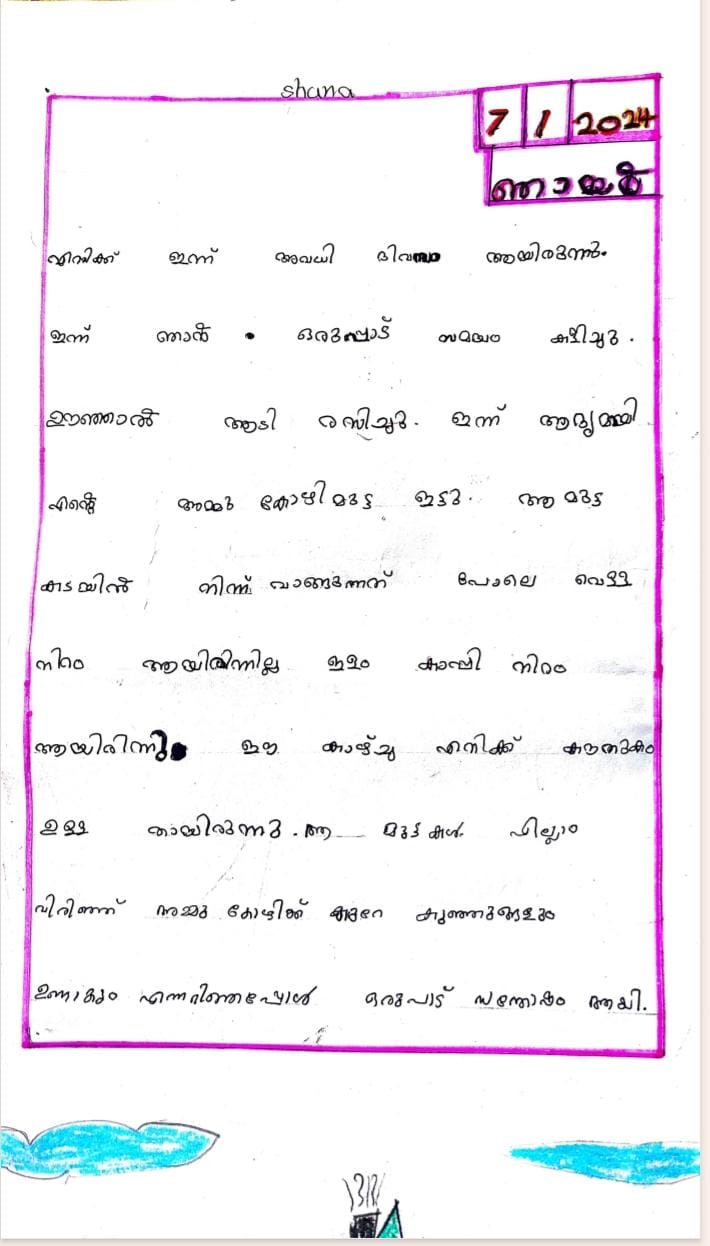 shana
7 1 2024
ഞായർ
എനിക്ക് ഇന്ന് അവധി ദിവസം ആയിരുന്നു.
ഇന്ന് ഞാൻ ഒരുപ്പാട് സമയം കളിച്ചു.
ഊഞ്ഞാൽ ആടി രസിച്ചു. ഇന്ന് ആദ്യമായി
എന്റെ അമ്മു കോഴി മുട്ട ഇട്ടു. ആ മുട്ട
കടയിൽ നിന്ന് വാങ്ങുന്നത് പോലെ വെള്ള
നിറം ആയിരിന്നില്ല ഇളം കാപ്പി നിറം
ആയിരിന്നു ഈ കാഴ്ച്ച എനിക്ക് കൗതുകം
ഉള്ള തായിരുന്നു. ആ മുട്ടകൾ എല്ലാം
വിരിഞ്ഞ് അമ്മു കോഴിക്ക് കുറേ കുഞ്ഞുങ്ങളും
ഉണ്ടാകും എന്നറിഞ്ഞപ്പോൾ ഒരുപാട് സന്തോഷം ആയി.